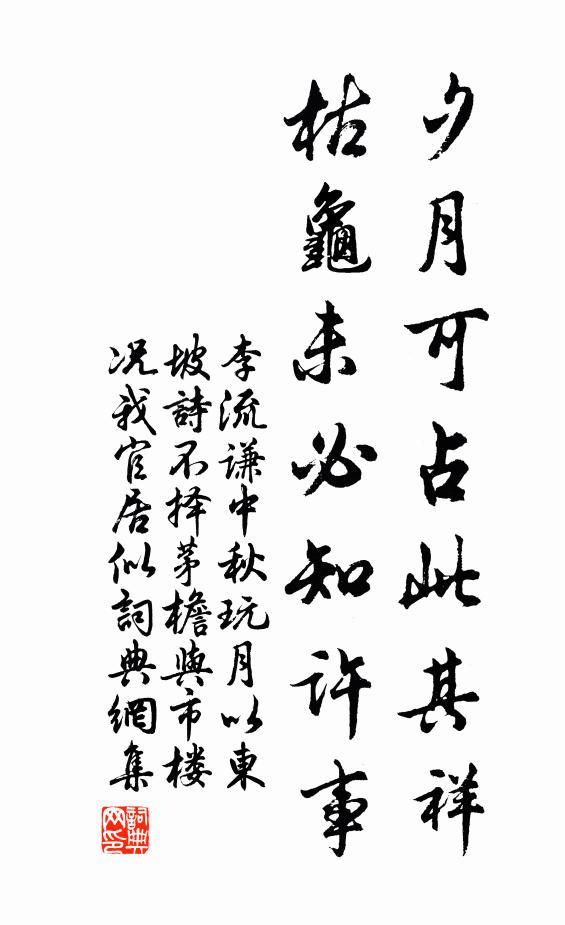 夕月可占此其祥
枯龜未必知許事
李流谦中秋玩月以東
坡詩不择茅檐與市楼
况我官居似詞典網集
詞典
网印